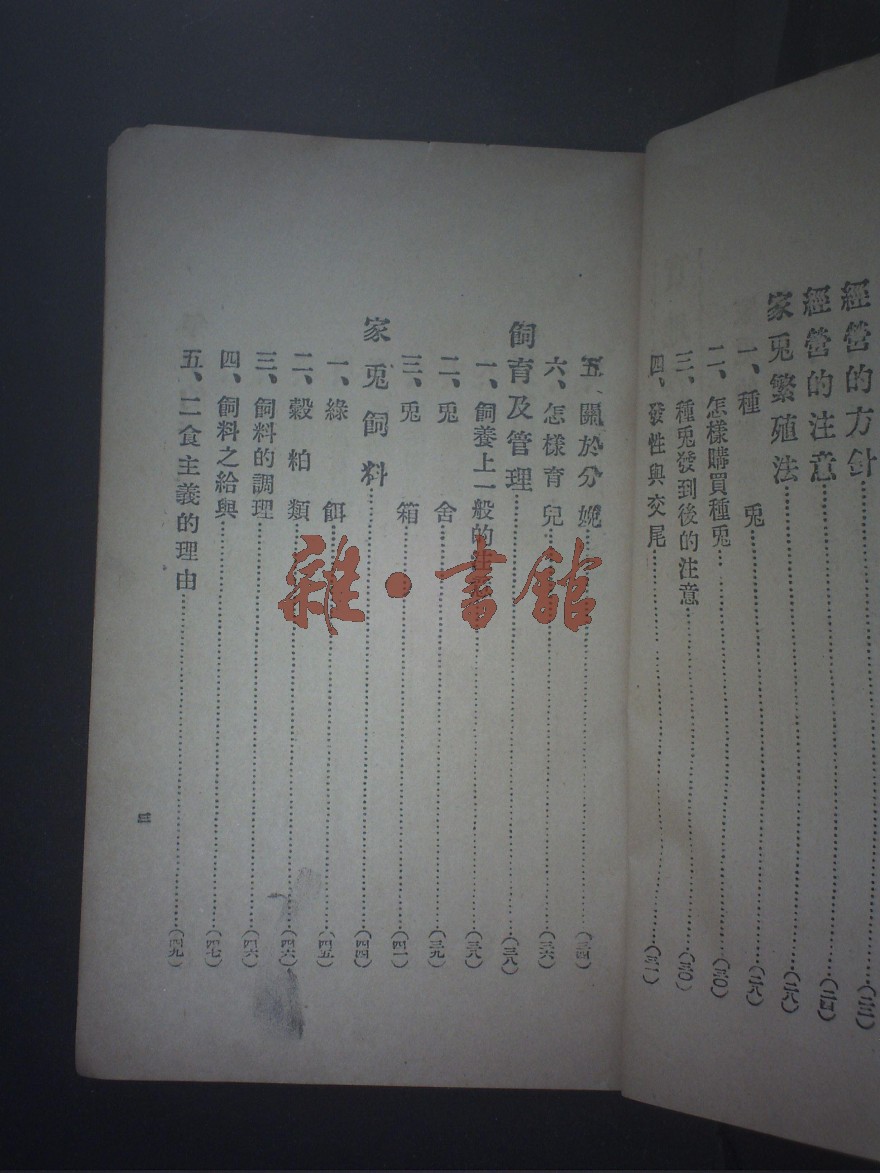 經營的方針……(二三)
經營的注意……(二四)
家兎繁殖法……(二八)
一、種兎……(二八)
二、怎樣購買種兎……(三〇)
三、種兎發到後的注意……(三〇)
四、發性與交尾……(三一)
五、關於分娩……(三四)
六、怎樣育兒……(三六)
飼育及管理……(三八)
一、飼養上一般的……(三八)
二、兎舍……(三九)
三、兎箱……(四一)
家兎飼料……(四四)
一、綠餌……(四五)
二、穀粕類……(四六)
三、飼料的調理……(四六)
四、飼料之給與……(四七)
五、二食主義的理由……(四九)
三
雜·書館